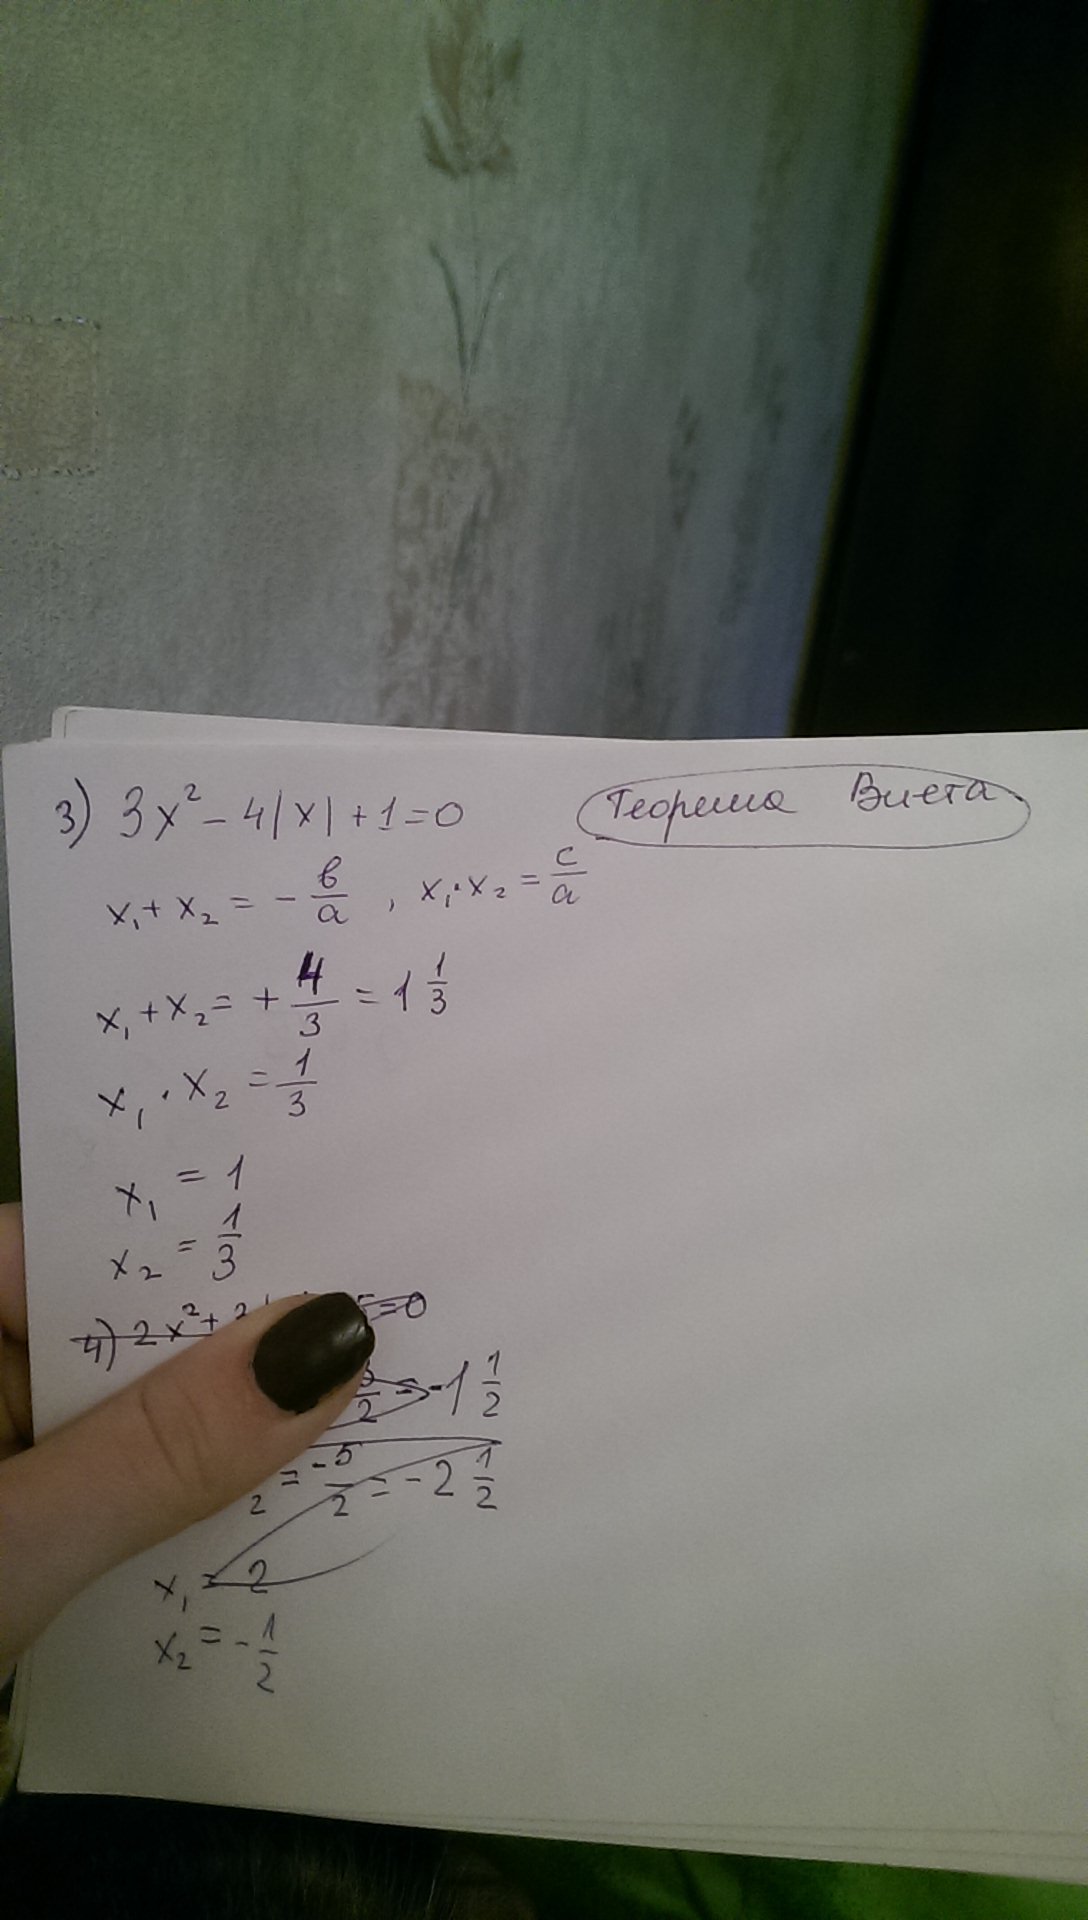 3) 3x² - 4|x| + 1 = 0
Теорема Виета
x₁ + x₂ = - в/а , x₁ · x₂ = с/а
x₁ + x₂ = + 4/3 = 1 1/3
x₁ · x₂ = 1/3
x₁ = 1
x₂ = 1/3
4) 2x² + = 0
/2 = -1 1/2
₂ = -5/2 = -2 1/2
x₁ = 2
x₂ = - 1/2